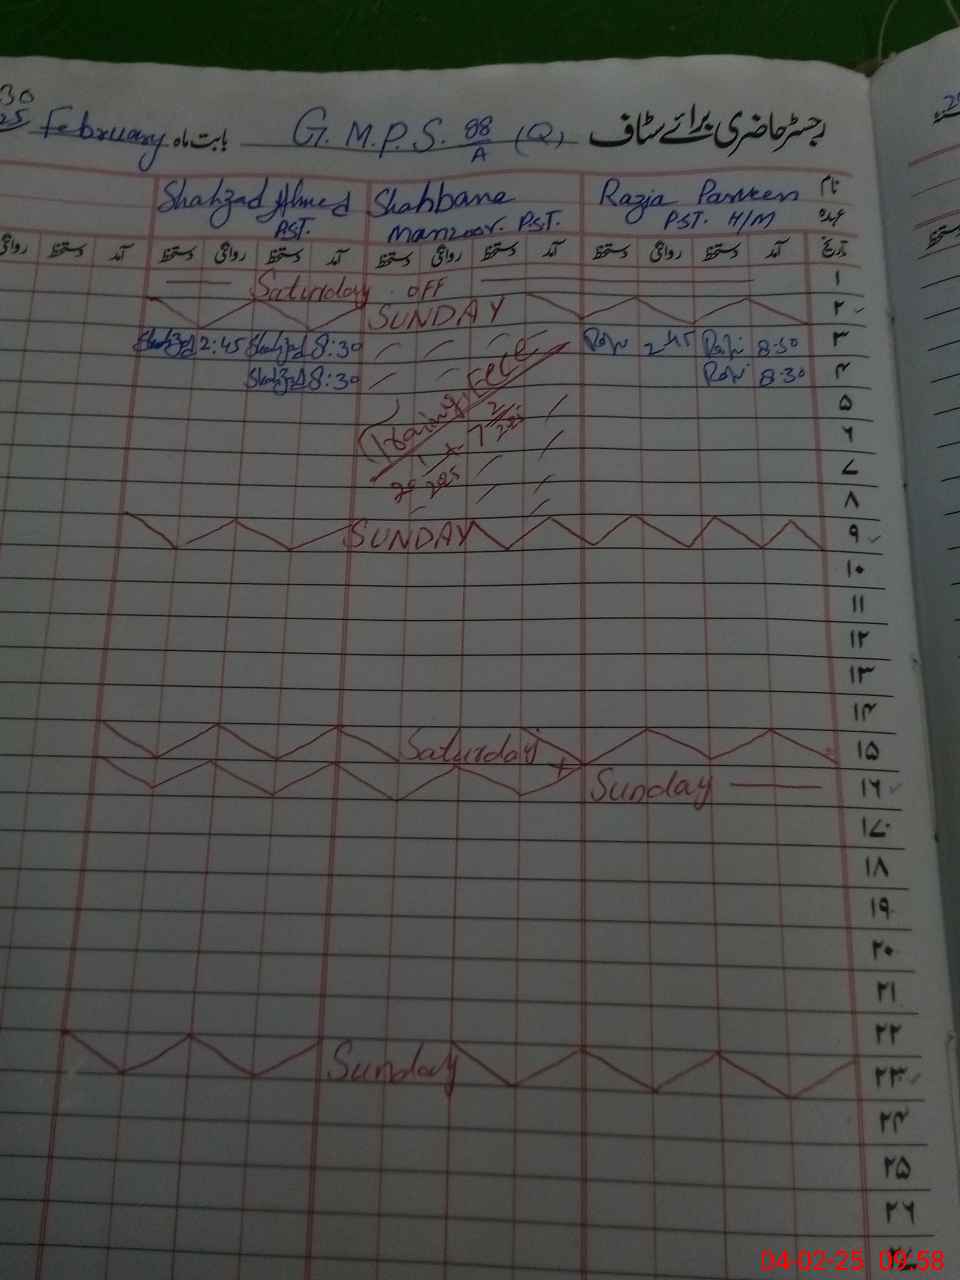 30
25
February بابت ماہ G.M.P.S. 88/A (Q) رجسٹر حاضری برائے سٹاف
Shahzad Ahmed Shahbana Razia Parveen نام
PST. Manzoor. P.S.T. PST. H/M عہدہ
روانگی دستخط آمد دستخط روانگی دستخط آمد دستخط روانگی دستخط آمد دستخط روانگی دستخط آمد تاریخ
Saturday OFF ۱
SUNDAY ۲
Shahzad 2:45 Shahzad 8:30 2:45 8:30 ۳
Shahzad 8:30 8:30 ۴
Training ۵
۶
۷
۸
SUNDAY ۹
۱۰
۱۱
۱۲
۱۳
۱۴
Saturday + ۱۵
Sunday ۱۶
۱۷
۱۸
۱۹
۲۰
۲۱
۲۲
Sunday ۲۳
۲۴
۲۵
۲۶
۲۷
04-02-25 09:58